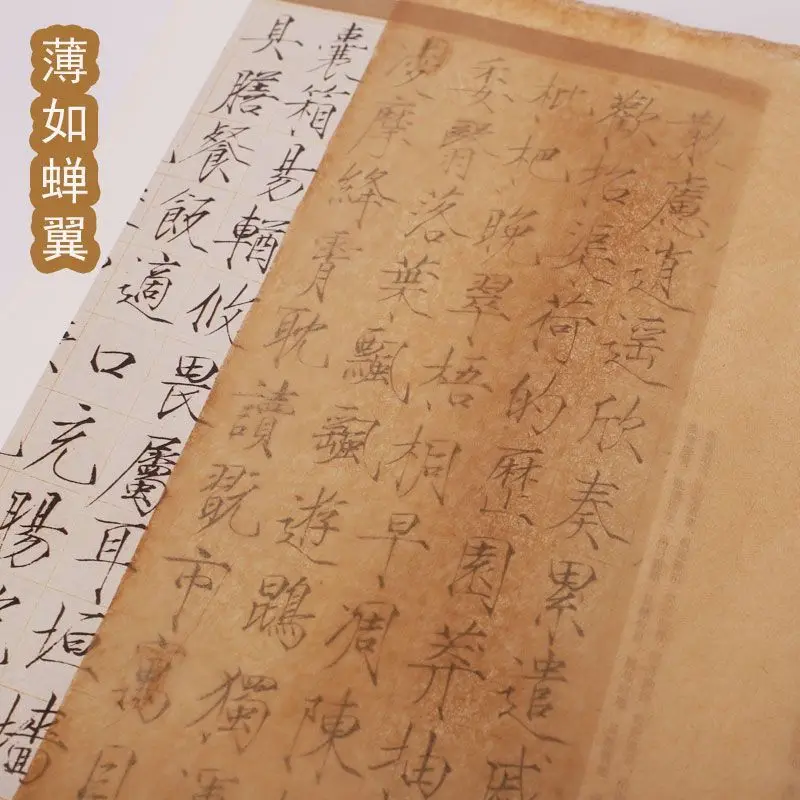 薄如蝉翼
散慮逍遥欣奏累遣慼
歡招渠荷的歷園莽抽
枇杷晚翠梧桐早凋陳
委翳落葉飄飖遊鵾獨運
凌摩絳霄耽讀翫市寓目
囊箱易輶攸畏屬耳垣牆
具膳餐飯適口充腸